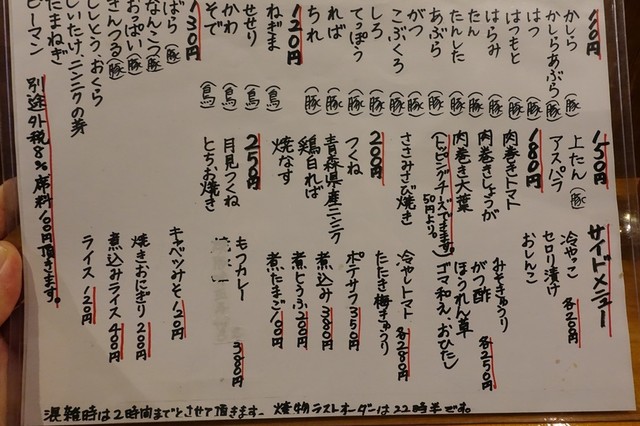 110円
かしら (豚)
かしらあぶら (豚)
はつ (豚)
はつもと (豚)
はらみ (豚)
たん (豚)
たんした (豚)
あぶら (豚)
がつ (豚)
こぶくろ (豚)
しろ (豚)
てっぽう (豚)
れば (豚)
ちれ (豚)
120円
ねぎま (鳥)
せせり (鳥)
かわ (鳥)
そで (鳥)
130円
ばら (豚)
なんこつ (豚)
おっぱい (豚)
さんつる (豚)
ししとう、おくら
しいたけ、ニンニクの芽
たまねぎ
ピーマン
150円
上たん (豚)
アスパラ
180円
肉巻きトマト
肉巻きしょうが
肉巻き大葉
(トッピングチーズできます。)
50円より。
ささみさび焼き
200円
つくね
青森県産ニンニク
鶏白れば
焼なす
250円
月見つくね
とちお焼き
サイドメニュー
冷やっこ 各220円
セロリ漬け
おしんこ
みそきゅうり
がつ酢 各250円
ほうれん草
ゴマ和え、おひたし
冷やしトマト 各280円
たたき梅きゅうり
ポテサラ350円
煮込み380円
煮とうふ200円
煮たまご100円
もつカレー 380円
キャベツみそ120円
焼きおにぎり200円
煮込みライス400円
ライス120円
別途外税8%席料100円頂きます。
混雑時は2時間までとさせて頂きます。 焼物ラストオーダーは22時半です。